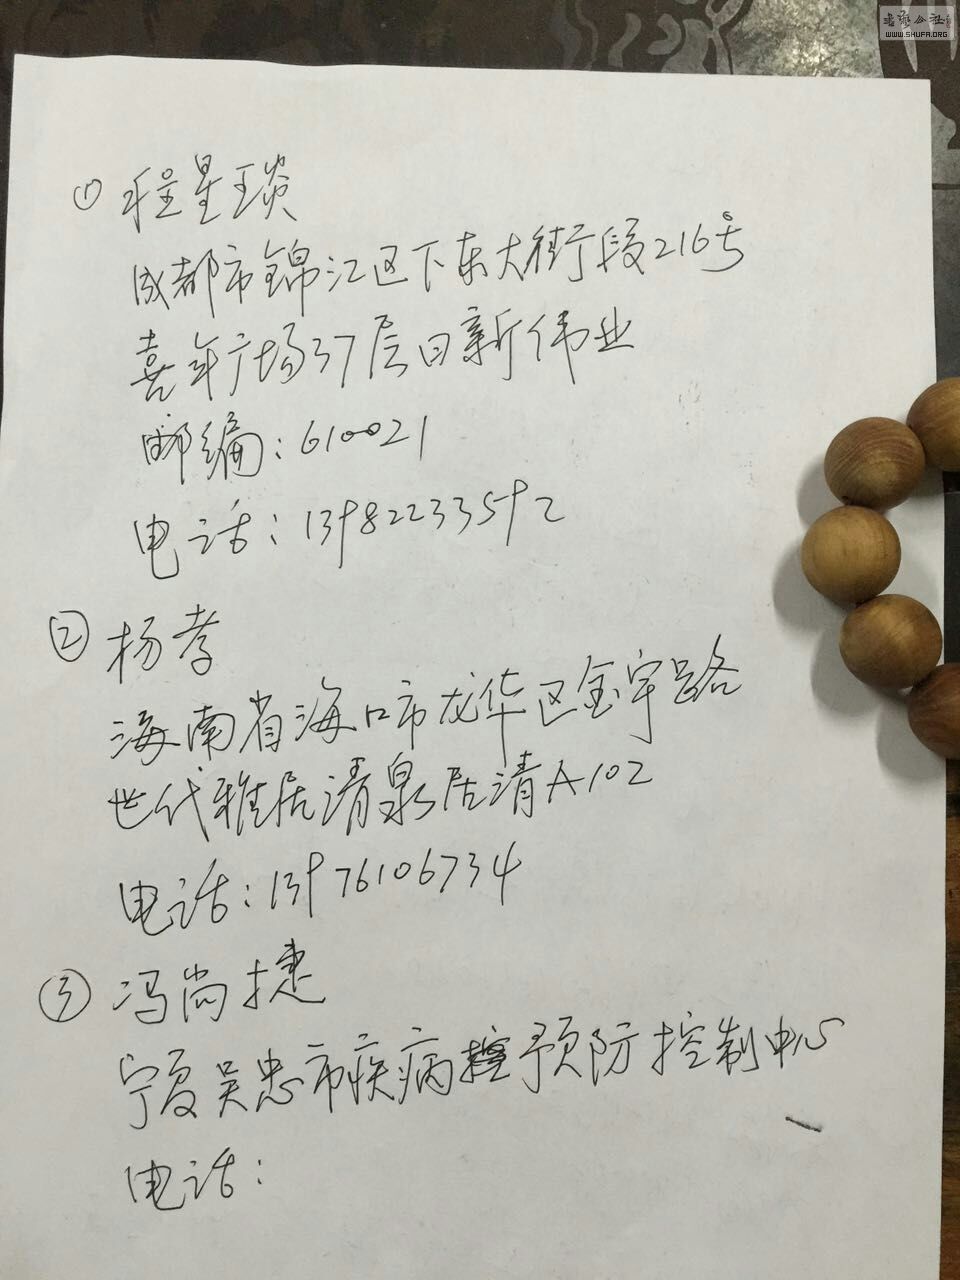 書法公社
WWW.SHUFA.ORG
① 程星琰
成都市锦江区下东大街段216号
喜年广场37层日新伟业
邮编：610021
电话：13982233592
② 杨孝
海南省海口市龙华区金宇路
世代雅居清泉居清A102
电话：13976106734
③ 冯尚捷
宁夏吴忠市疾病预防控制中心
电话：